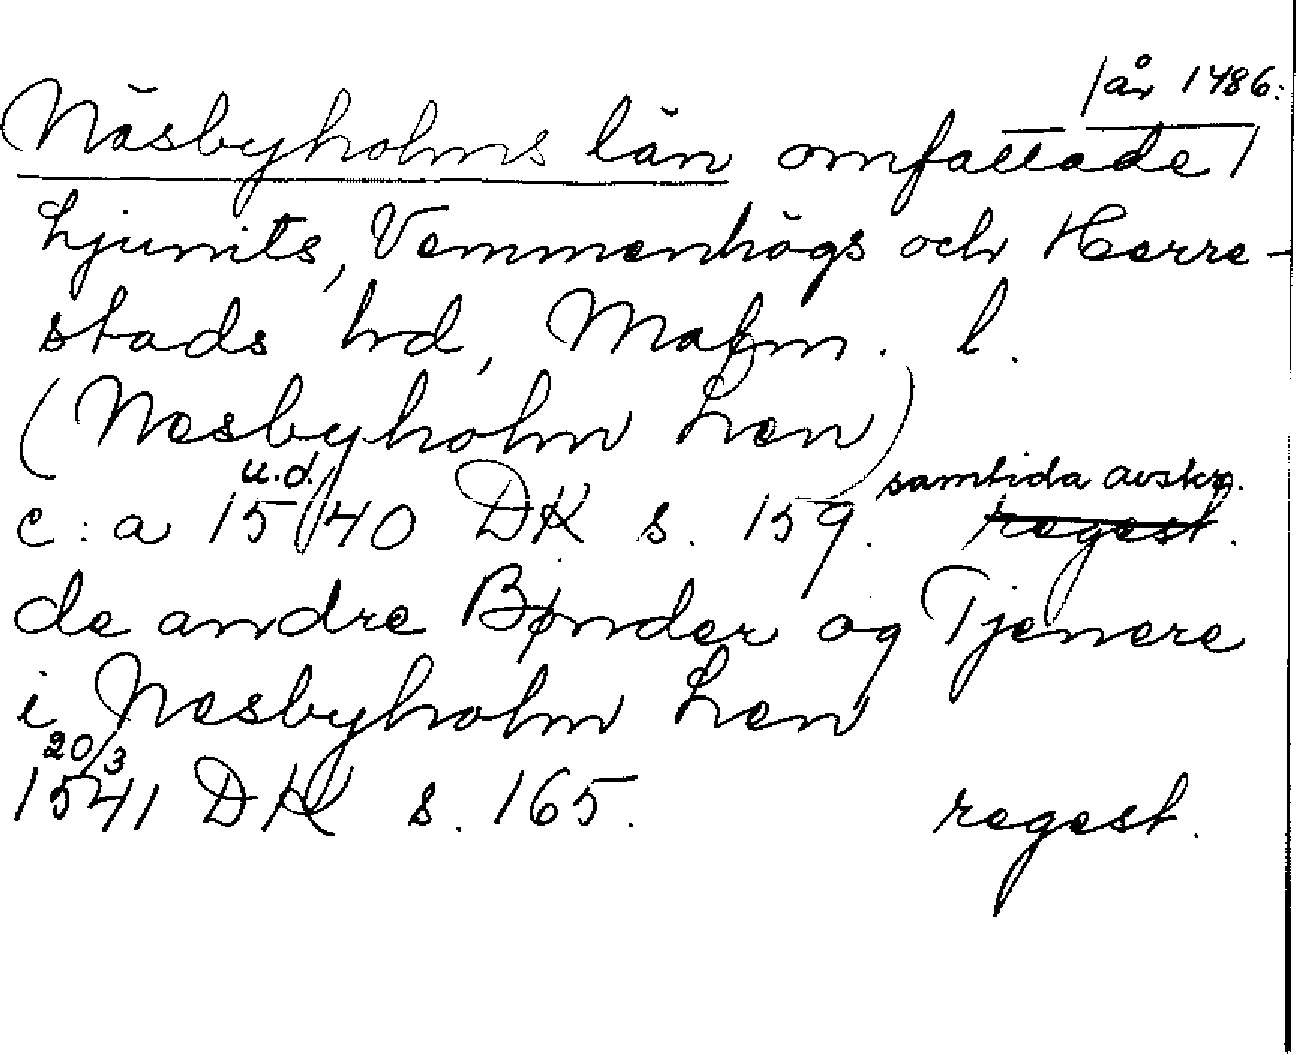 /år 1486:
Näsbyholms län omfattade /
Ljunits, Vemmenhögs och Herre-
stads hd, Malm. l.
(Nesbyholm Len)
u.d. samtida avskr.
c:a 1540 DK s. 159. regest.
de andre Bønder og Tjenere
i Nesbyholm Len
20/3
1541 DK s. 165. regest.